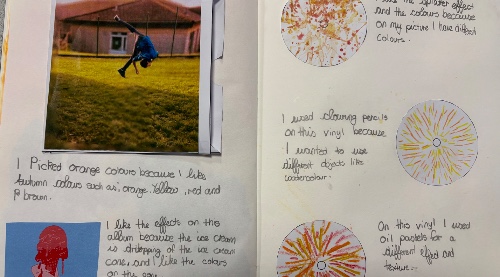 I Picked orange colours because I like
Autumn colours such as; orange, Yellow, red and
brown.
I like the effects on this
album because the ice cream
is dripping of the ice cream
cone, and I like the colours
on the
effect
and the colours because
on my picture I have diffrent
colours.
I used clouring pencils
on this vinyl because
I wanted to use
different objects like
watercolour.
On this vinyl I used
oil pastels for a
different effect and
texture.